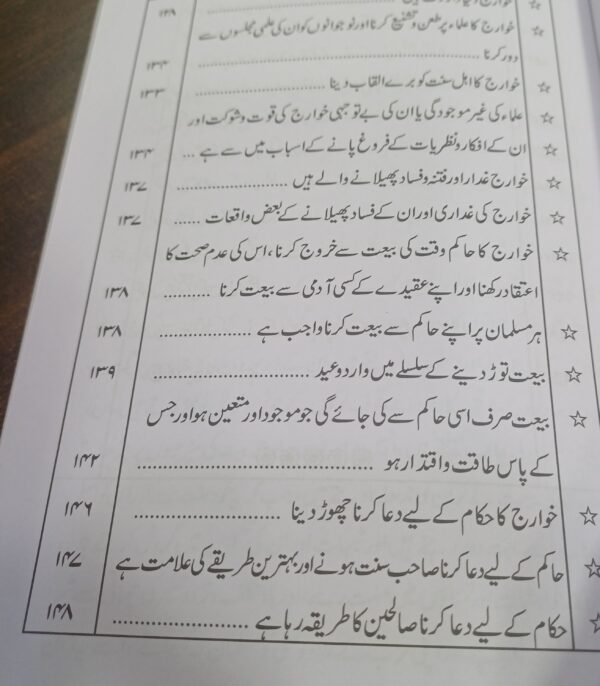 خوارج کا علماء پر طعن و تشنیع کرنا اور نوجوانوں کو ان کی علمی مجلسوں سے
دور کرنا ۱۳۲
خوارج کا اھل سنت کو برے القاب دینا ۱۳۳
علماء کی غیر موجودگی یا ان کی بے توجہی خوارج کی قوت و شوکت اور
ان کے افکار و نظریات کے فروغ پانے کے اسباب میں سے ہے ... ۱۳۴
خوارج غدار اور فتنہ و فساد پھیلانے والے ہیں ۱۳۷
خوارج کی غداری اور ان کے فساد پھیلانے کے بعض واقعات ...... ۱۳۷
خوارج کا حاکم وقت کی بیعت سے خروج کرنا، اس کی عدم صحت کا
اعتقاد رکھنا اور اپنے عقیدے کے کسی آدمی سے بیعت کرنا .......... ۱۳۸
ہر مسلمان پر اپنے حاکم سے بیعت کرنا واجب ہے ................... ۱۳۸
بیعت توڑ دینے کے سلسلے میں وارد وعید ................................ ۱۳۹
بیعت صرف اسی حاکم سے کی جائے گی جو موجود اور متعین ہو اور جس
کے پاس طاقت و اقتدار ہو ................................................ ۱۴۲
خوارج کا حکام کے لیے دعا کرنا چھوڑ دینا ............................ ۱۴۶
حاکم کے لیے دعا کرنا صاحب سنت ہونے اور بہترین طریقے کی علامت ہے ۱۴۷
حکام کے لیے دعا کرنا صالحین کا طریقہ رہا ہے ......................... ۱۴۸